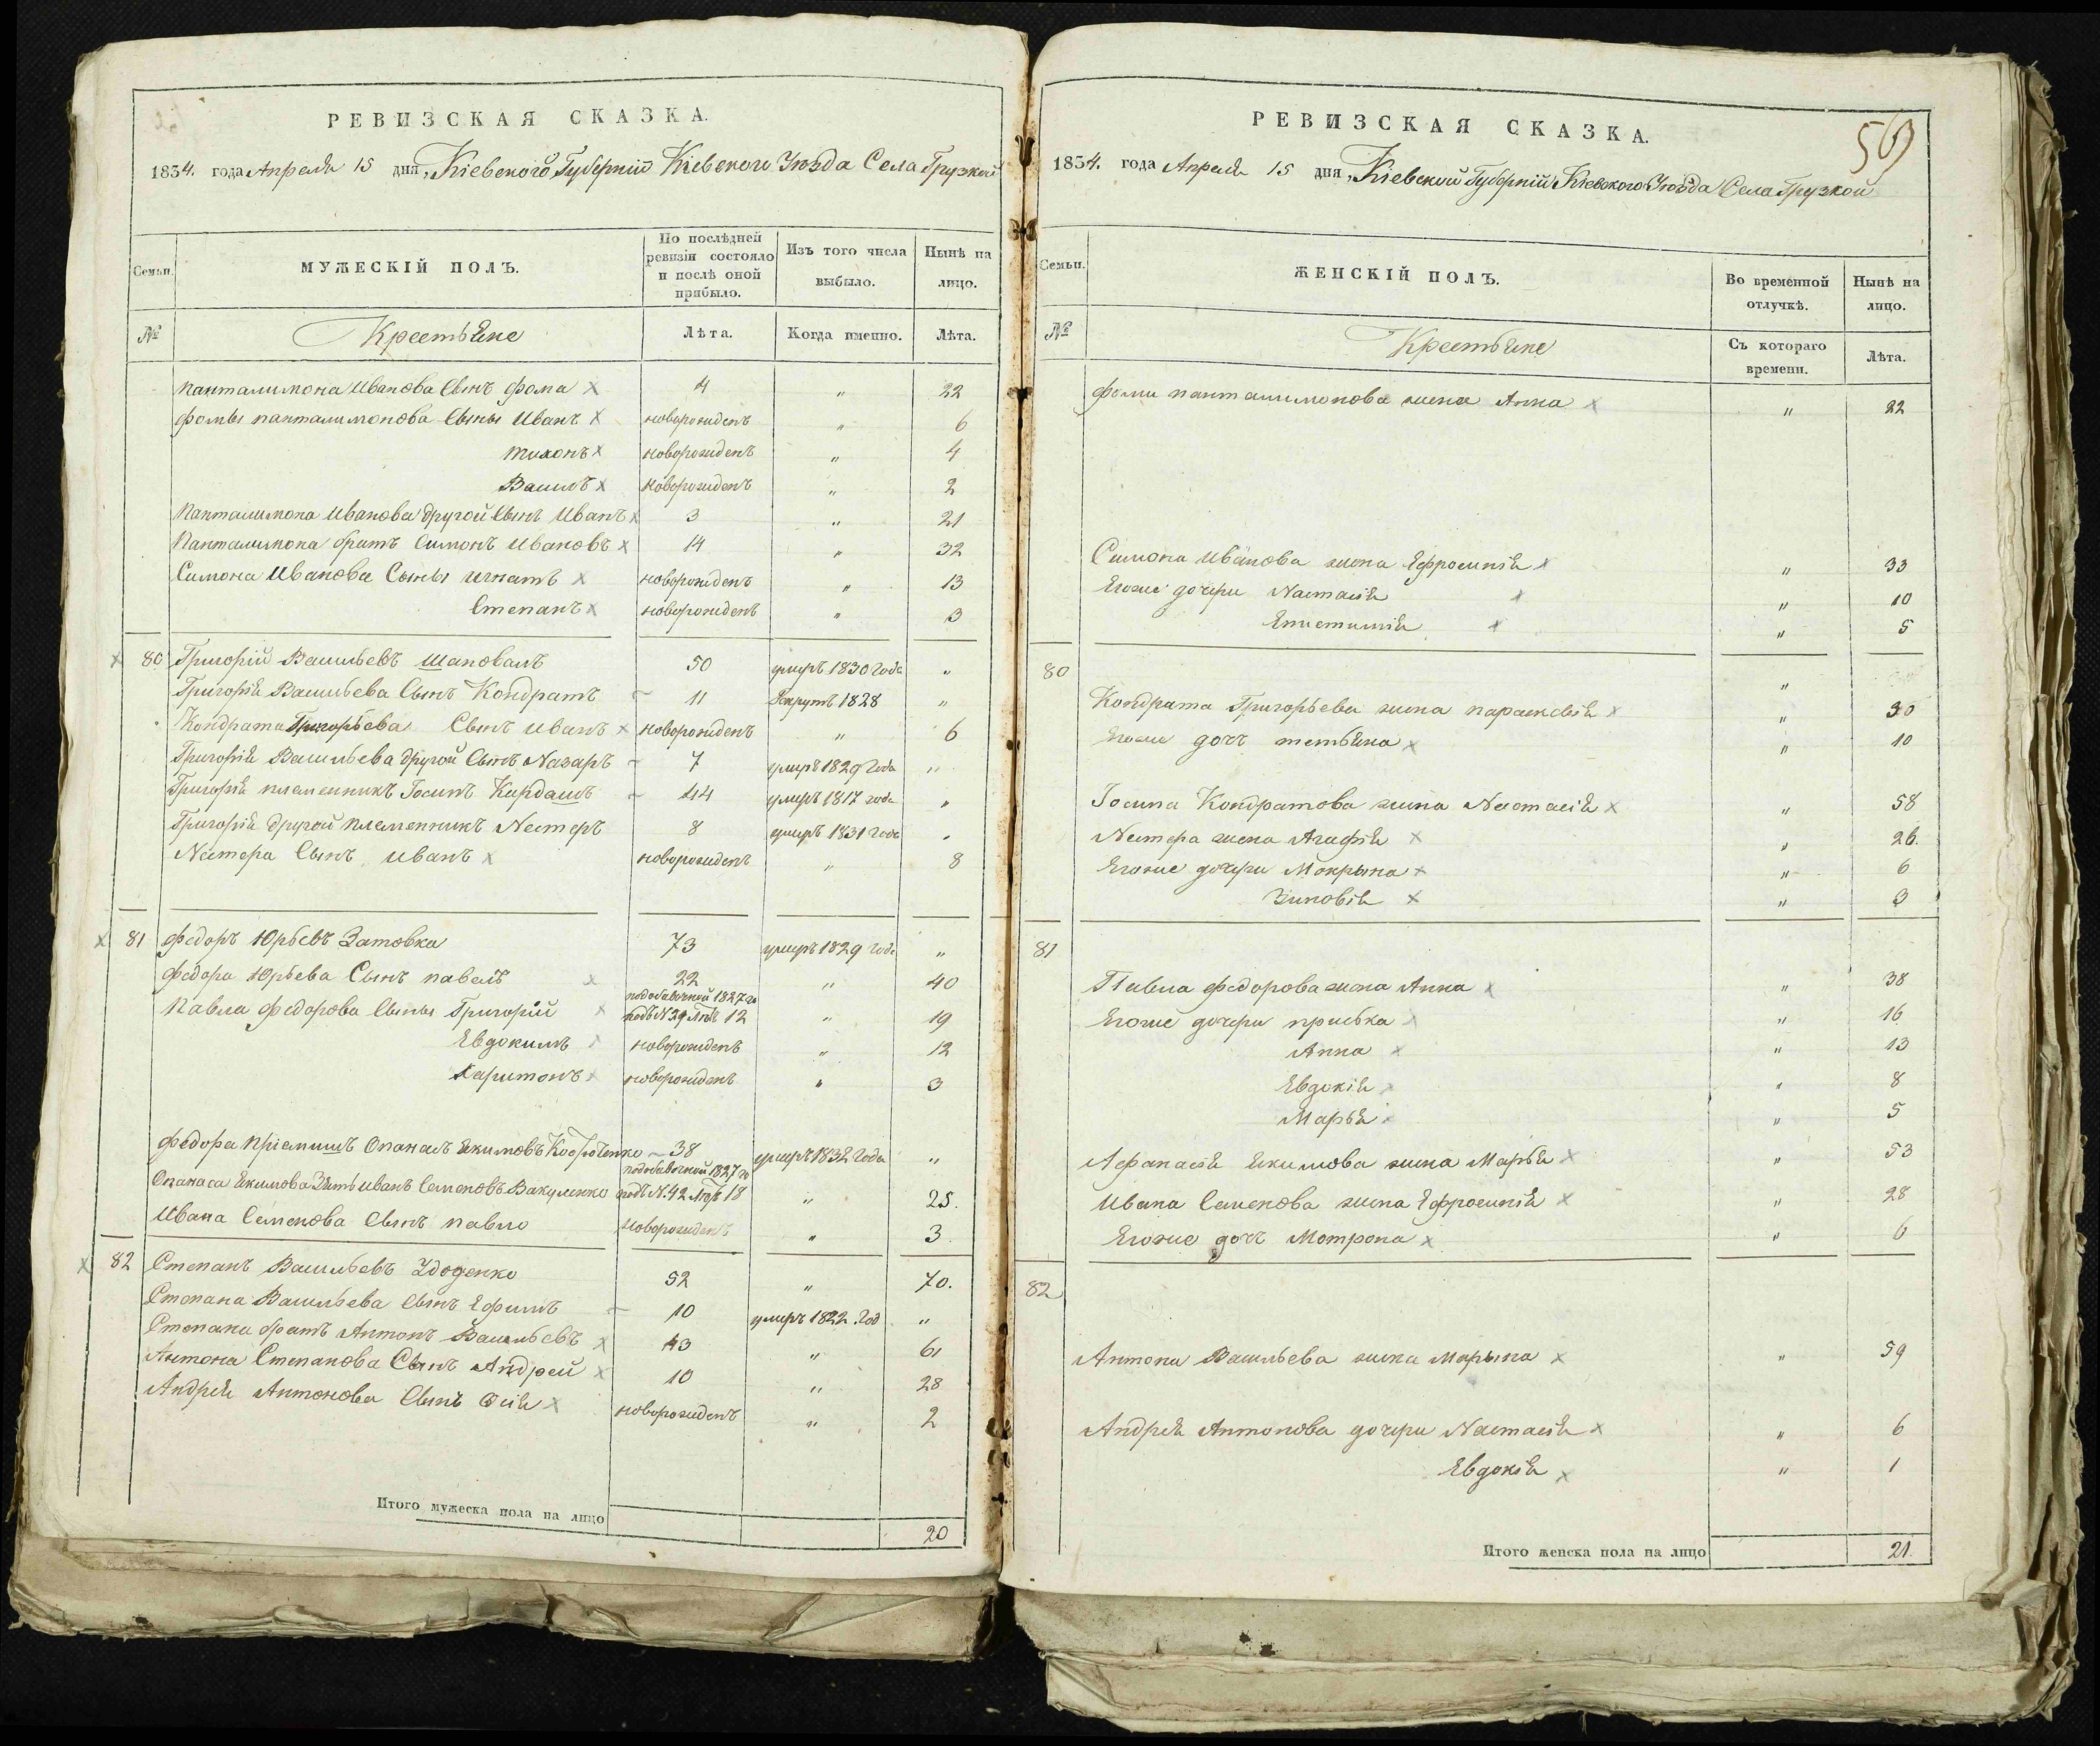 РЕВИЗСКАЯ СКАЗКА.
1834. года Апреля 15 дня, Кіевской Губерніи Кіевского Уезда Села Грузкой
Семьи.
МУЖЕСКІЙ ПОЛЪ.
По послѣдней ревизіи состояло и послѣ оной прибыло.
Изъ того числа выбыло.
Нынѣ на лицо.
№
Крестьяне
Лѣта.
Когда именно.
Лѣта.
Панталимона Иванова Сынъ Фома 4 " 22
Фомы Панталимонова Сыны Иванъ новорожденъ " 6
Тихонъ новорожденъ " 4
Василь новорожденъ " 2
Панталимона Иванова другой Сынъ Иванъ 3 " 21
Панталимона братъ Симонъ Ивановъ 14 " 32
Симона Иванова Сыны Игнатъ новорожденъ " 13
Степанъ новорожденъ " 3
80 Григорій Васильевъ Шаповалъ 50 умеръ 1830 года "
Григорія Васильева Сынъ Кондратъ 11 Рекрутъ 1828 "
Кондрата Григорьева Сынъ Иванъ новорожденъ " 6
Григорія Васильева другой Сынъ Назаръ 7 умеръ 1829 года "
Григорія племенникъ Іосипъ Кардашъ 44 умеръ 1817 года "
Григорія другой племенникъ Нестеръ 8 умеръ 1831 года "
Нестера Сынъ Иванъ новорожденъ " 8
81 Федоръ Юрьевъ Затовка 73 умеръ 1829 года "
Федора Юрьева Сынъ Павелъ 22 " 40
Павла Федорова Сыны Григорій подобавочной 1827 го подъ N 29 лѣтъ 12 " 19
Евдокимъ новорожденъ " 12
Харитонъ новорожденъ " 3
Федора пріемишъ Опанасъ Якимовъ 38 умеръ 1832 года "
Опанаса Якимова Зять Иванъ Семеновъ Вакуленко подобавочной 1827 го подъ N. 42 лѣтъ 18 " 25.
Ивана Семенова Сынъ Павло новорожденъ " 3
82 Степанъ Васильевъ 52 " 70.
Степана Васильева Сынъ Ефимъ 10 умеръ 1822 год "
Степана братъ Антонъ Васильевъ 43 " 61
Антона Степанова Сынъ Андрей 10 " 28
Андрея Антонова Сынъ новорожденъ " 2
Итого мужеска пола на лицо 20
РЕВИЗСКАЯ СКАЗКА.
1834. года Апреля 15 дня, Кіевской Губерніи Кіевского Уезда Села Грузкой
Семьи.
ЖЕНСКІЙ ПОЛЪ.
Во временной отлучкѣ.
Нынѣ на лицо.
№
Крестьяне
Съ котораго времени.
Лѣта.
Фомы Панталимонова жена Анна " 22
Симона Иванова жена Ефросинія " 33
Егоже дочери Настасія " 10
Епистимія " 5
80 "
Кондрата Григорьева жена Парасковія " 30
Егоже дочь Тетьяна " 10
Іосипа Кондратова жена Настасія " 58
Нестера жена Агафія " 26.
Егоже дочери Мокрына " 6
Зиновія " 3
81
Павла Федорова жена Анна " 38
Егоже дочери Приська " 16
Анна " 13
Евдокія " 8
Марья " 5
Афанасія Якимова жена Марья " 53
Ивана Семенова жена Ефросинія " 28
Егоже дочь Мотрона " 6
82
Антона Васильева жена Марына " 59
Андрея Антонова дочери Настасія " 6
Евдокія " 1
Итого женска пола на лицо 21.